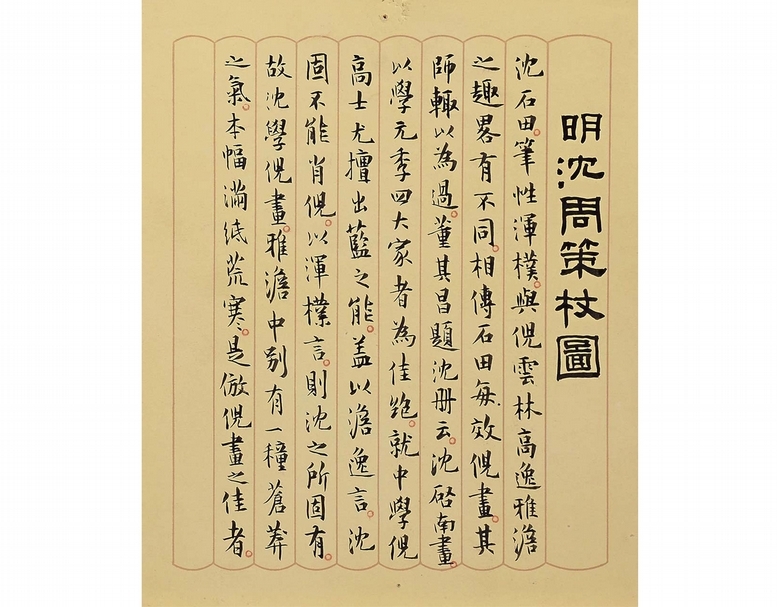 明沈周策杖圖
沈石田。筆性渾樸。與倪雲林高逸雅澹
之趣畧有不同。相傳石田每效倪畫。其
師輙以為過。董其昌題沈冊云。沈啓南畫。
以學元季四大家者為佳絕。就中學倪
高士尤擅出藍之能。盖以澹逸言。沈
固不能肖倪。以渾樸言。則沈之所固有。
故沈學倪畫。雅澹中別有一種蒼莽
之氣。本幅滿紙荒寒。是倣倪畫之佳者。